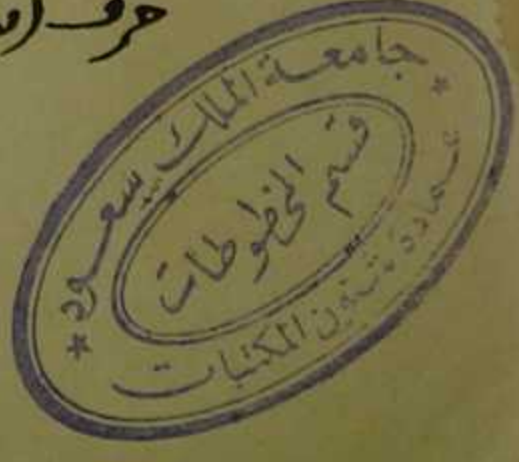 حرف
جامعة الملك سعود
قسم المخطوطات
عمادة شئون المكتبات